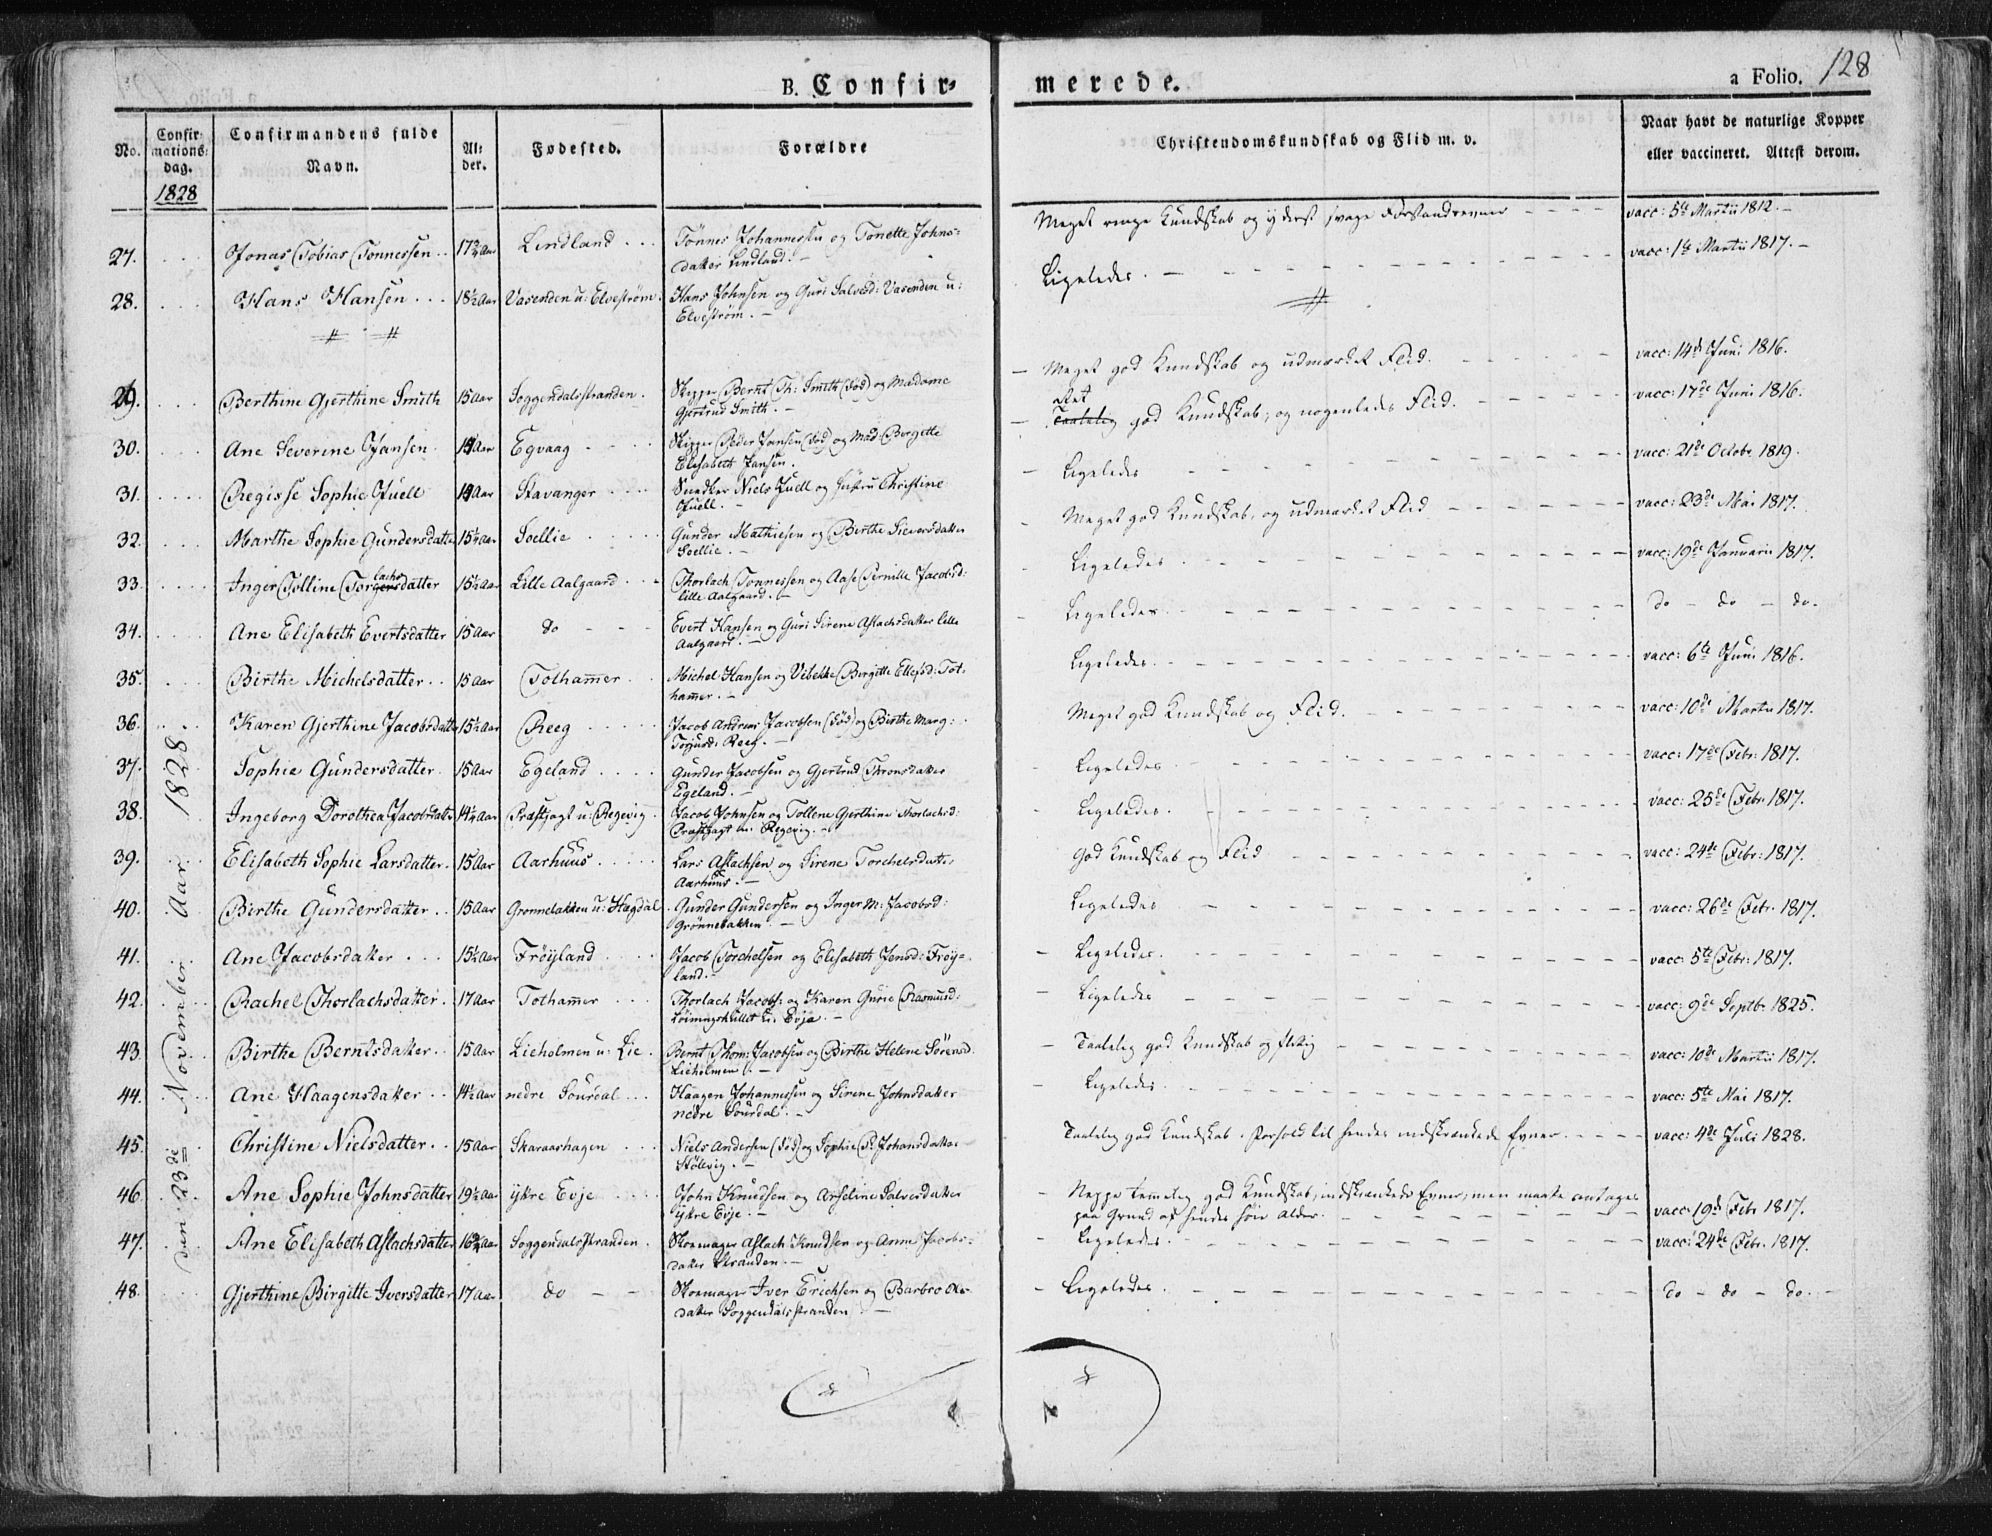 B. Confir-
merede.
a Folio. 128
No.
Confirmations-dag.
1828
Confirmandens fulde Navn.
Alder.
Fødested.
Forældre
Christendomskundskab og Flid m. v.
Naar havt de naturlige Kopper eller vaccineret. Attest derom.
den 23de November Aar 1828.
27. Jonas Tobias Tønnessen 17 3/4 Aar Lindland Tønnes Johannessen og Tonette Johns-
datter Lindland. Meget ringe Kundskab og yderst svage Forstandsevner vacc: 5te Martii 1812.
28. Hans Hansen 18 1/2 Aar Vasenden u: Elvestrøm Hans Johnsen og Guri Salvesd: Vasenden u:
Elvestrøm. Ligeledes. vacc: 1te Martii 1817.
29. Berthine Gjerthine Smith 15 Aar Soggendalsstranden Skipper Bernt Th: Smith (død) og Madame
Gjertrud Smith. Meget god Kundskab og udmærket Flid. vacc: 14de Juni 1816.
30. Ane Severine Jansen 14 Aar Egvaag Skipper Peder Jansen (død) og Mad: Birgette
Elisabeth Jansen. Ret god Kundskab, og nogenledes Flid. vacc: 17de Juni 1816.
31. Regisse Sophie Juell 14 Aar Stavanger Snedker Niels Juell og Hustru Christine
Juell. Ligeledes vacc: 21de Octobr 1819.
32. Marthe Sophie Gundersdatter 15 1/2 Aar Soellie Gunder Mathiesen og Birthe Sieversdatter
Soellie. Meget god Kundskab, og udmærket Flid vacc: 23de Mai 1817.
33. Inger Tolline Torlachsdatter 15 1/4 Aar Lille Aalgaard Thorlach Tønnessen og Aase Pernille Jacobsd:
lille Aalgaard. Ligeledes. vacc: 19de Januarii 1817.
34. Ane Elisabeth Evertsdatter 15 Aar do Evert Hansen og Guri Sirene Aslachsdatter lille
Aalgaard. Ligeledes. do - do - do.
35. Birthe Michelsdatter 15 Aar Tothammer Michel Hansen og Vibekke Birgitte Ellefsd: Tot-
hammer. Ligeledes. vacc: 6te Juni 1816.
36. Karen Gjerthine Jacobsdatter 15 1/2 Aar Reeg Jacob Andreas Jacobsen (død) og Birthe Marg:
Reeg. Meget god Kundskab og Flid. vacc: 10de Martii 1817.
37. Sophie Gundersdatter 15 Aar Egeland Gunder Jacobsen og Gjertrud Thronsdatter
Egeland. Ligeledes vacc: 17de Febr: 1817.
38. Ingeborg Dorothea Jacobsdatter 14 1/2 Aar Præstjagt u: Regevig Jacob Johnsen og Tollene Gjerthine Thorlachsd:
Præstjagt u: Regevig. Ligeledes. vacc: 25de Febr: 1817.
39. Elisabeth Sophie Larsdatter 15 Aar Aarhuus Lars Aslachsen og Sirene Torchelsdatter
Aarhuus. God Kundskab og Flid vacc: 24de Febr: 1817.
40. Birthe Gundersdatter 15 Aar Grønnebakken u: Hægdal Gunder Gundersen og Inger M: Jacobsd:
Grønnebakken. Ligeledes vacc: 26de Febr. 1817.
41. Ane Jacobsdatter 15 1/2 Aar Frøyland Jacob Torchelsen og Elisabeth Jensd: Frøy-
land. Ligeledes. vacc: 5te Febr: 1817.
42. Rachel Thorlachsdatter 17 Aar Tothammer Thorlach Jacobs: og Karen Gurie Rasmusd:
u: Evje. Ligeledes vacc: 9de Septbr 1825.
43. Birthe Berntsdatter 15 Aar Lieholmen u: Lie Bernt Thom: Jacobsen og Birthe Helene Sørensd:
Lieholmen. Taalelig god Kundskab og flitig vacc: 10de Martii 1817.
44. Ane Haagensdatter 14 1/2 Aar nedre Sourdal Haagen Johannessen og Sirene Johnsdatter
nedre Sourdal. Ligeledes. vacc: 5te Mai 1817.
45. Christine Nielsdatter 15 Aar Skaraashagen Niels Andersen (død) og Sophie P: Johansdatter
Stølevig. Taalelig god Kundskab i Forhold til hendes indskrænkede Evner. vacc: 4de Juli 1828.
46. Ane Sophie Johnsdatter 19 1/2 Aar ytre Evje John Knudsen og Arseline Salvesdatter
ytre Evje. Neppe temelig god Kundskab, indskrænkede Evner, men maatte antages
paa Grund af hendes høie Alder. vacc: 19de Febr 1817.
47. Ane Elisabeth Aslachsdatter 16 3/4 Aar Soggendalsstranden Skoemager Aslach Knudsen og Anne Jacobs-
datter Stranden. Ligeledes. vacc: 24de Febr. 1817.
48. Gjerthine Birgitte Iversdatter 17 Aar do Skoemager Iver Erichsen og Barbro
datter Soggendalsstranden Ligeledes. do - do - do.